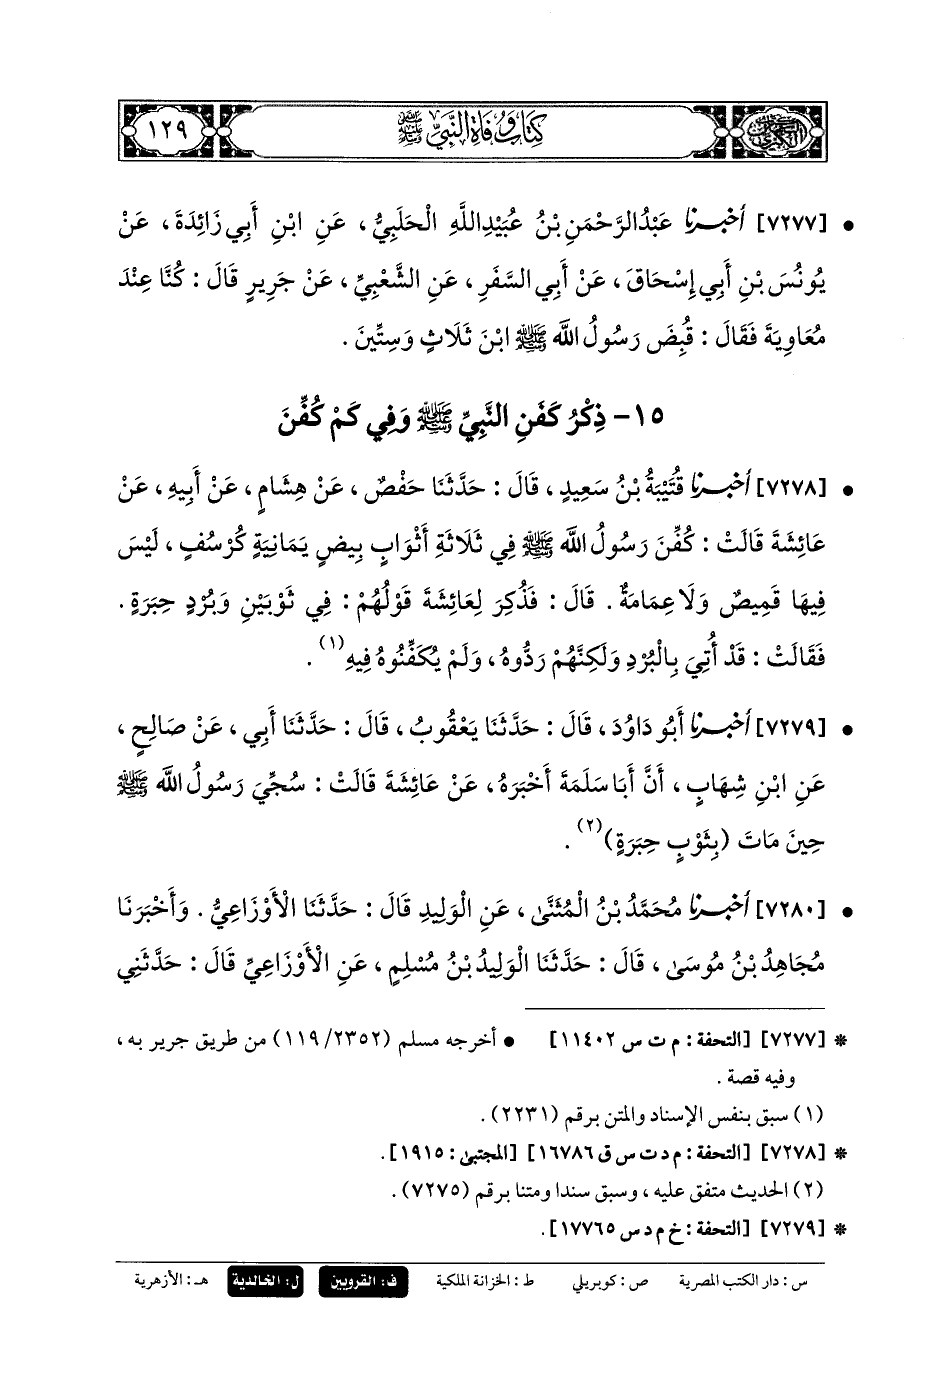 السنن الكبرى
كتاب وفاة النبي ﷺ
١٢٩
• [٧٢٧٧] أخبرنا عَبْدُالرَّحْمَنِ بْنُ عُبَيْدِاللَّهِ الْحَلَبِيُّ، عَنِ ابْنِ أَبِي زَائِدَةَ، عَنْ
يُونُسَ بْنِ أَبِي إِسْحَاقَ، عَنْ أَبِي السَّفَرِ، عَنِ الشَّعْبِيِّ، عَنْ جَرِيرٍ قَالَ: كُنَّا عِنْدَ
مُعَاوِيَةَ فَقَالَ: قُبِضَ رَسُولُ اللَّه ﷺ ابْنَ ثَلَاثٍ وَسِتِّينَ.
١٥- ذِكْرُ كَفَنِ النَّبِيِّ ﷺ وَفِي كَمْ كُفِّنَ
• [٧٢٧٨] أخبرنا قُتَيْبَةُ بْنُ سَعِيدٍ، قَالَ: حَدَّثَنَا حَفْصٌ، عَنْ هِشَامٍ، عَنْ أَبِيهِ، عَنْ
عَائِشَةَ قَالَتْ: كُفِّنَ رَسُولُ اللَّه ﷺ فِي ثَلَاثَةِ أَثْوَابٍ بِيضٍ يَمَانِيَةٍ كُرْسُفٍ، لَيْسَ
فِيهَا قَمِيصٌ وَلَا عِمَامَةٌ. قَالَ: فَذُكِرَ لِعَائِشَةَ قَوْلُهُمْ: فِي ثَوْبَيْنِ وَبُرْدٍ حِبَرَةٍ.
فَقَالَتْ: قَدْ أُتِيَ بِالْبُرْدِ وَلَكِنَّهُمْ رَدُّوهُ، وَلَمْ يُكَفِّنُوهُ فِيهِ(١).
• [٧٢٧٩] أخبرنا أَبُو دَاوُدَ، قَالَ: حَدَّثَنَا يَعْقُوبُ، قَالَ: حَدَّثَنَا أَبِي، عَنْ صَالِحٍ،
عَنِ ابْنِ شِهَابٍ، أَنَّ أَبَا سَلَمَةَ أَخْبَرَهُ، عَنْ عَائِشَةَ قَالَتْ: سُجِّيَ رَسُولُ اللَّه ﷺ
حِينَ مَاتَ (بِثَوْبِ حِبَرَةٍ)(٢).
• [٧٢٨٠] أخبرنا مُحَمَّدُ بْنُ الْمُثَنَّىٰ، عَنِ الْوَلِيدِ قَالَ: حَدَّثَنَا الْأَوْزَاعِيُّ. وَأَخْبَرَنَا
مُجَاهِدُ بْنُ مُوسَىٰ، قَالَ: حَدَّثَنَا الْوَلِيدُ بْنُ مُسْلِمٍ، عَنِ الْأَوْزَاعِيِّ قَالَ: حَدَّثَنِي
* [٧٢٧٧] [التحفة: م ت س ١١٤٠٢] • أخرجه مسلم (٢٣٥٢/١١٩) من طريق جرير به،
وفيه قصة.
(١) سبق بنفس الإسناد والمتن برقم (٢٢٣١).
* [٧٢٧٨] [التحفة: م د ت س ق ١٦٧٨٦] [المجتبىٰ: ١٩١٥].
(٢) الحديث متفق عليه، وسبق سندا ومتنا برقم (٧٢٧٥).
* [٧٢٧٩] [التحفة: خ م د س ١٧٧٦٥].
س: دار الكتب المصرية ص: كوبريلي ط: الخزانة الملكية ف: القرويين ل: الخالدية هـ: الأزهرية